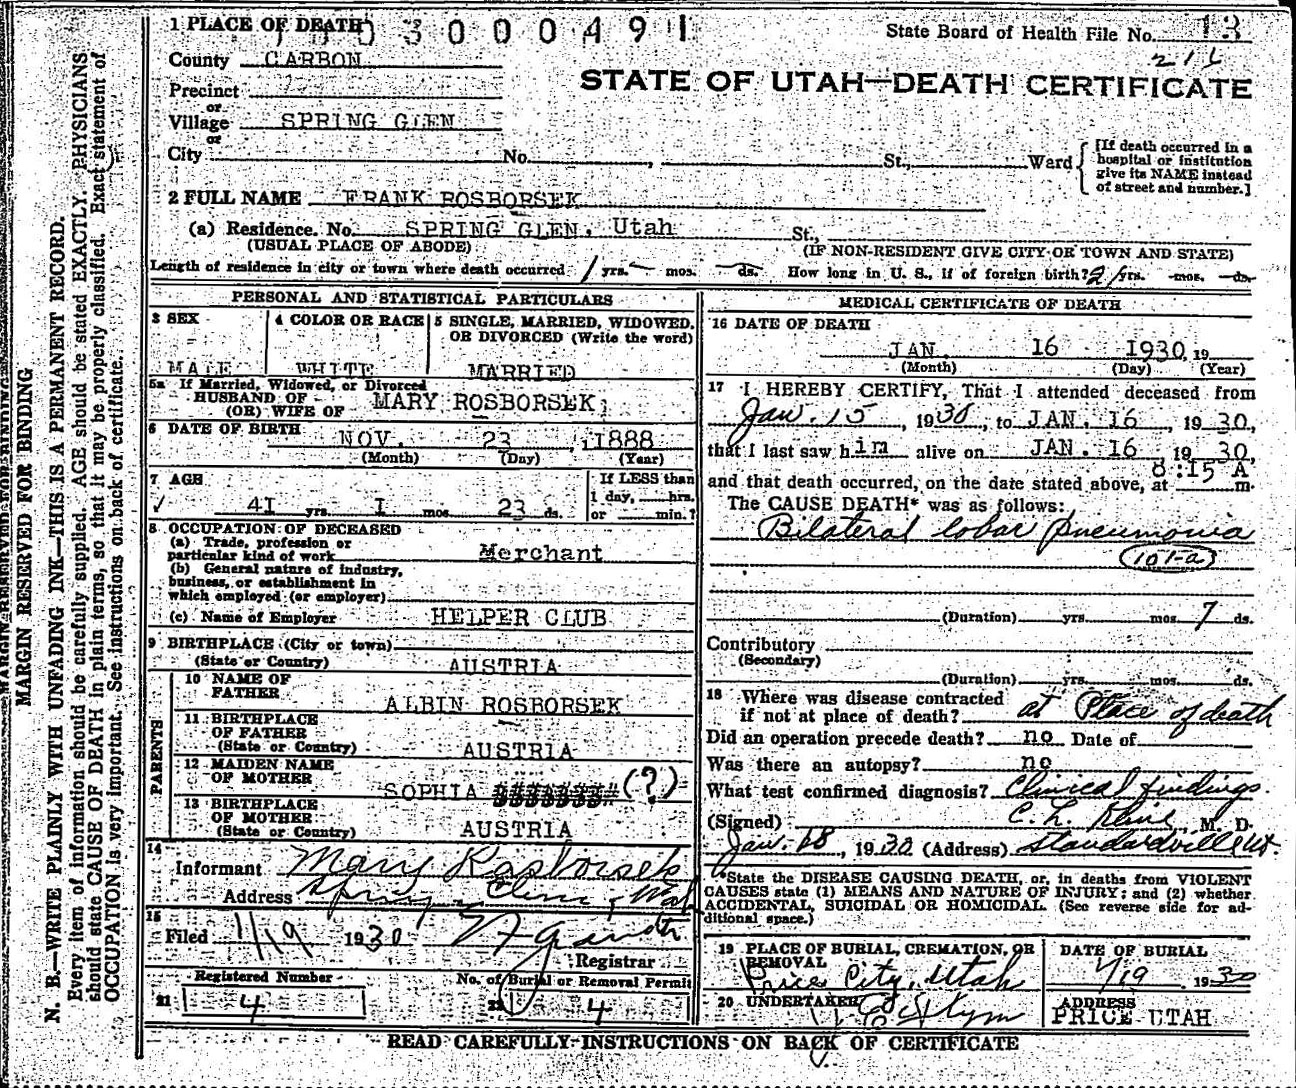 1 PLACE OF DEATH
State Board of Health File No. 13
216
County CARBON
STATE OF UTAH—DEATH CERTIFICATE
Precinct
or
Village SPRING GLEN
or
City No. , St., Ward
[If death occurred in a hospital or institution give its NAME instead of street and number.]
2 FULL NAME FRANK ROSBORSEK
(a) Residence. No. SPRING GLEN, Utah St.,
(USUAL PLACE OF ABODE) (IF NON-RESIDENT GIVE CITY OR TOWN AND STATE)
Length of residence in city or town where death occurred 1 yrs. — mos. — ds. How long in U. S., if of foreign birth? 21 yrs. — mos. — ds.
PERSONAL AND STATISTICAL PARTICULARS
3 SEX 4 COLOR OR RACE 5 SINGLE, MARRIED, WIDOWED, OR DIVORCED (Write the word)
MALE WHITE MARRIED
5a If Married, Widowed, or Divorced
HUSBAND OF
(OR) WIFE OF MARY ROSBORSEK
6 DATE OF BIRTH
NOV. 23 , 1888
(Month) (Day) (Year)
7 AGE
If LESS than
1 day, hrs.
or min.?
41 yrs. 1 mos. 23 ds.
8 OCCUPATION OF DECEASED
(a) Trade, profession or
particular kind of work Merchant
(b) General nature of industry,
business, or establishment in
which employed (or employer)
(c) Name of Employer HELPER CLUB
9 BIRTHPLACE (City or town)
(State or Country) AUSTRIA
PARENTS
10 NAME OF
FATHER ALBIN ROSBORSEK
11 BIRTHPLACE
OF FATHER
(State or Country) AUSTRIA
12 MAIDEN NAME
OF MOTHER SOPHIA (?)
13 BIRTHPLACE
OF MOTHER
(State or Country) AUSTRIA
14
Informant Mary Rosborsek
Address Spring Glen, Utah
15
Filed 1/19 1930
Registrar
Registered Number No. of Burial or Removal Permit
21 4 22 4
MEDICAL CERTIFICATE OF DEATH
16 DATE OF DEATH
JAN. 16 1930, 19
(Month) (Day) (Year)
17 I HEREBY CERTIFY, That I attended deceased from
Jan. 15, 1930, to JAN. 16, 1930,
that I last saw him alive on JAN. 16 1930,
and that death occurred, on the date stated above, at 8:15 A m.
The CAUSE DEATH* was as follows:
Bilateral lobar pneumonia
(101-a)
(Duration) yrs. mos. 7 ds.
Contributory
(Secondary)
(Duration) yrs. mos. ds.
18 Where was disease contracted
if not at place of death? at Place of death
Did an operation precede death? no Date of
Was there an autopsy? no
What test confirmed diagnosis? Clinical findings.
(Signed) C. L. Kline, M. D.
Jan. 18, 1930 (Address) Standardville Ut.
*State the DISEASE CAUSING DEATH, or, in deaths from VIOLENT
CAUSES state (1) MEANS AND NATURE OF INJURY; and (2) whether
ACCIDENTAL, SUICIDAL OR HOMICIDAL. (See reverse side for ad-
ditional space.)
19 PLACE OF BURIAL, CREMATION, OR
REMOVAL
Price City, Utah
DATE OF BURIAL
1/19 1930
20 UNDERTAKER
ADDRESS
PRICE UTAH
READ CAREFULLY INSTRUCTIONS ON BACK OF CERTIFICATE
MARGIN RESERVED FOR BINDING
N. B.—WRITE PLAINLY WITH UNFADING INK—THIS IS A PERMANENT RECORD.
Every item of information should be carefully supplied. AGE should be stated EXACTLY. PHYSICIANS
should state CAUSE OF DEATH in plain terms, so that it may be properly classified. Exact statement of
OCCUPATION is very important. See instructions on back of certificate.